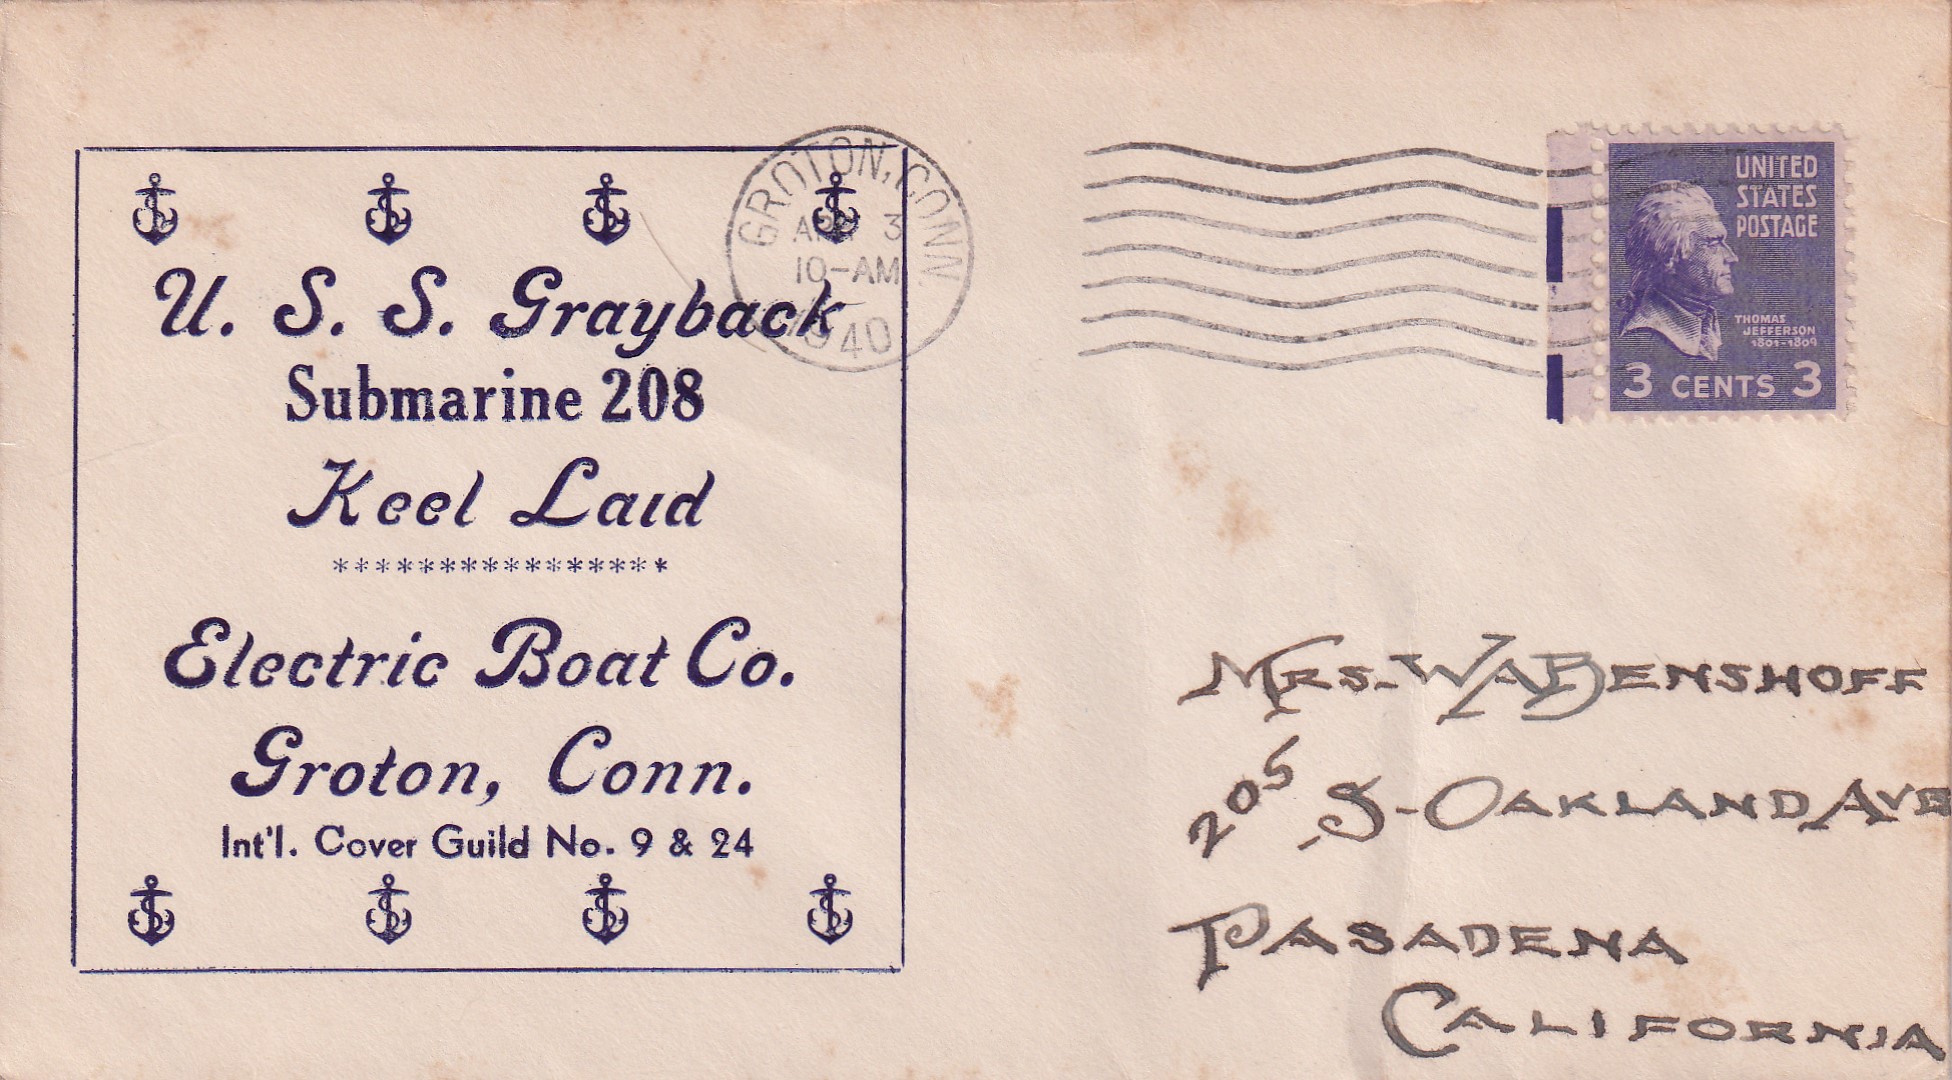 U. S. S. Grayback
Submarine 208
Keel Laid
*****************
Electric Boat Co.
Groton, Conn.
Int'l. Cover Guild No. 9 & 24
GROTON, CONN.
APR 3
10-AM
1940
UNITED
STATES
POSTAGE
THOMAS
JEFFERSON
1801-1809
3 CENTS 3
MRS. WABENSHOFF
205 S-OAKLAND AVE
PASADENA
CALIFORNIA